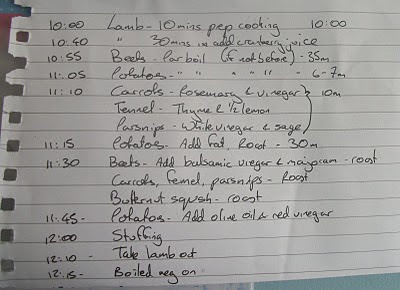 10:00 Lamb - 10 mins pep cooking 10:00
10:40 " 30 mins in add cranberry juice
10:55 Beets - Par boil (if not before) - 35m
11:05 Potatoes - " " " " " - 6-7m
11:10 Carrots - Rosemary & vinegar } 10m
Fennel - Thyme & 1/2 lemon
Parsnips - White vinegar & sage
11:15 Potatoes - Add fat, Roast - 30m
11:30 Beets - Add balsamic vinegar & marjoram - roast
Carrots, fennel, parsnips - Roast
Butternut squash - roast
11:45 - Potatoes - Add olive oil & red vinegar
12:00 Stuffing
12:10 - Take lamb out
12:15 - Boiled veg on